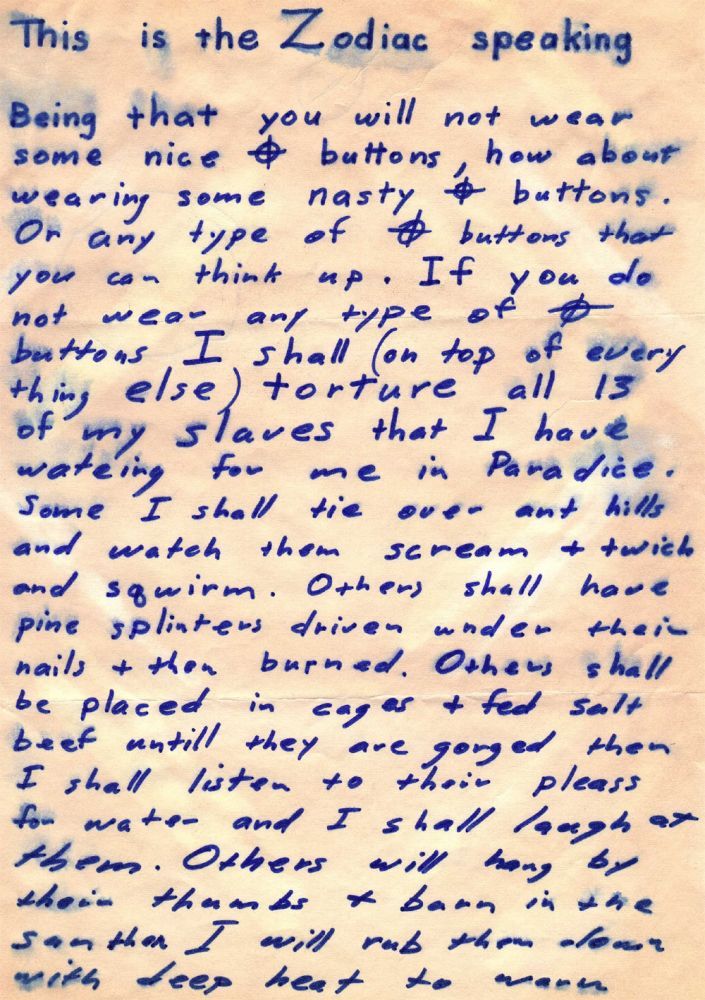 This is the Zodiac speaking
Being that you will not wear
some nice ⌖ buttons, how about
wearing some nasty ⌖ buttons.
Or any type of ⌖ buttons that
you can think up. If you do
not wear any type of ⌖
buttons I shall (on top of every
thing else) torture all 13
of my slaves that I have
wateing for me in Paradice.
Some I shall tie over ant hills
and watch them scream + twich
and squirm. Others shall have
pine splinters driven under their
nails + then burned. Others shall
be placed in cages + fed salt
beef untill they are gorged then
I shall listen to their pleass
for water and I shall laugh at
them. Others will hang by
their thumbs + burn in the
sun then I will rub them down
with deep heat to warm